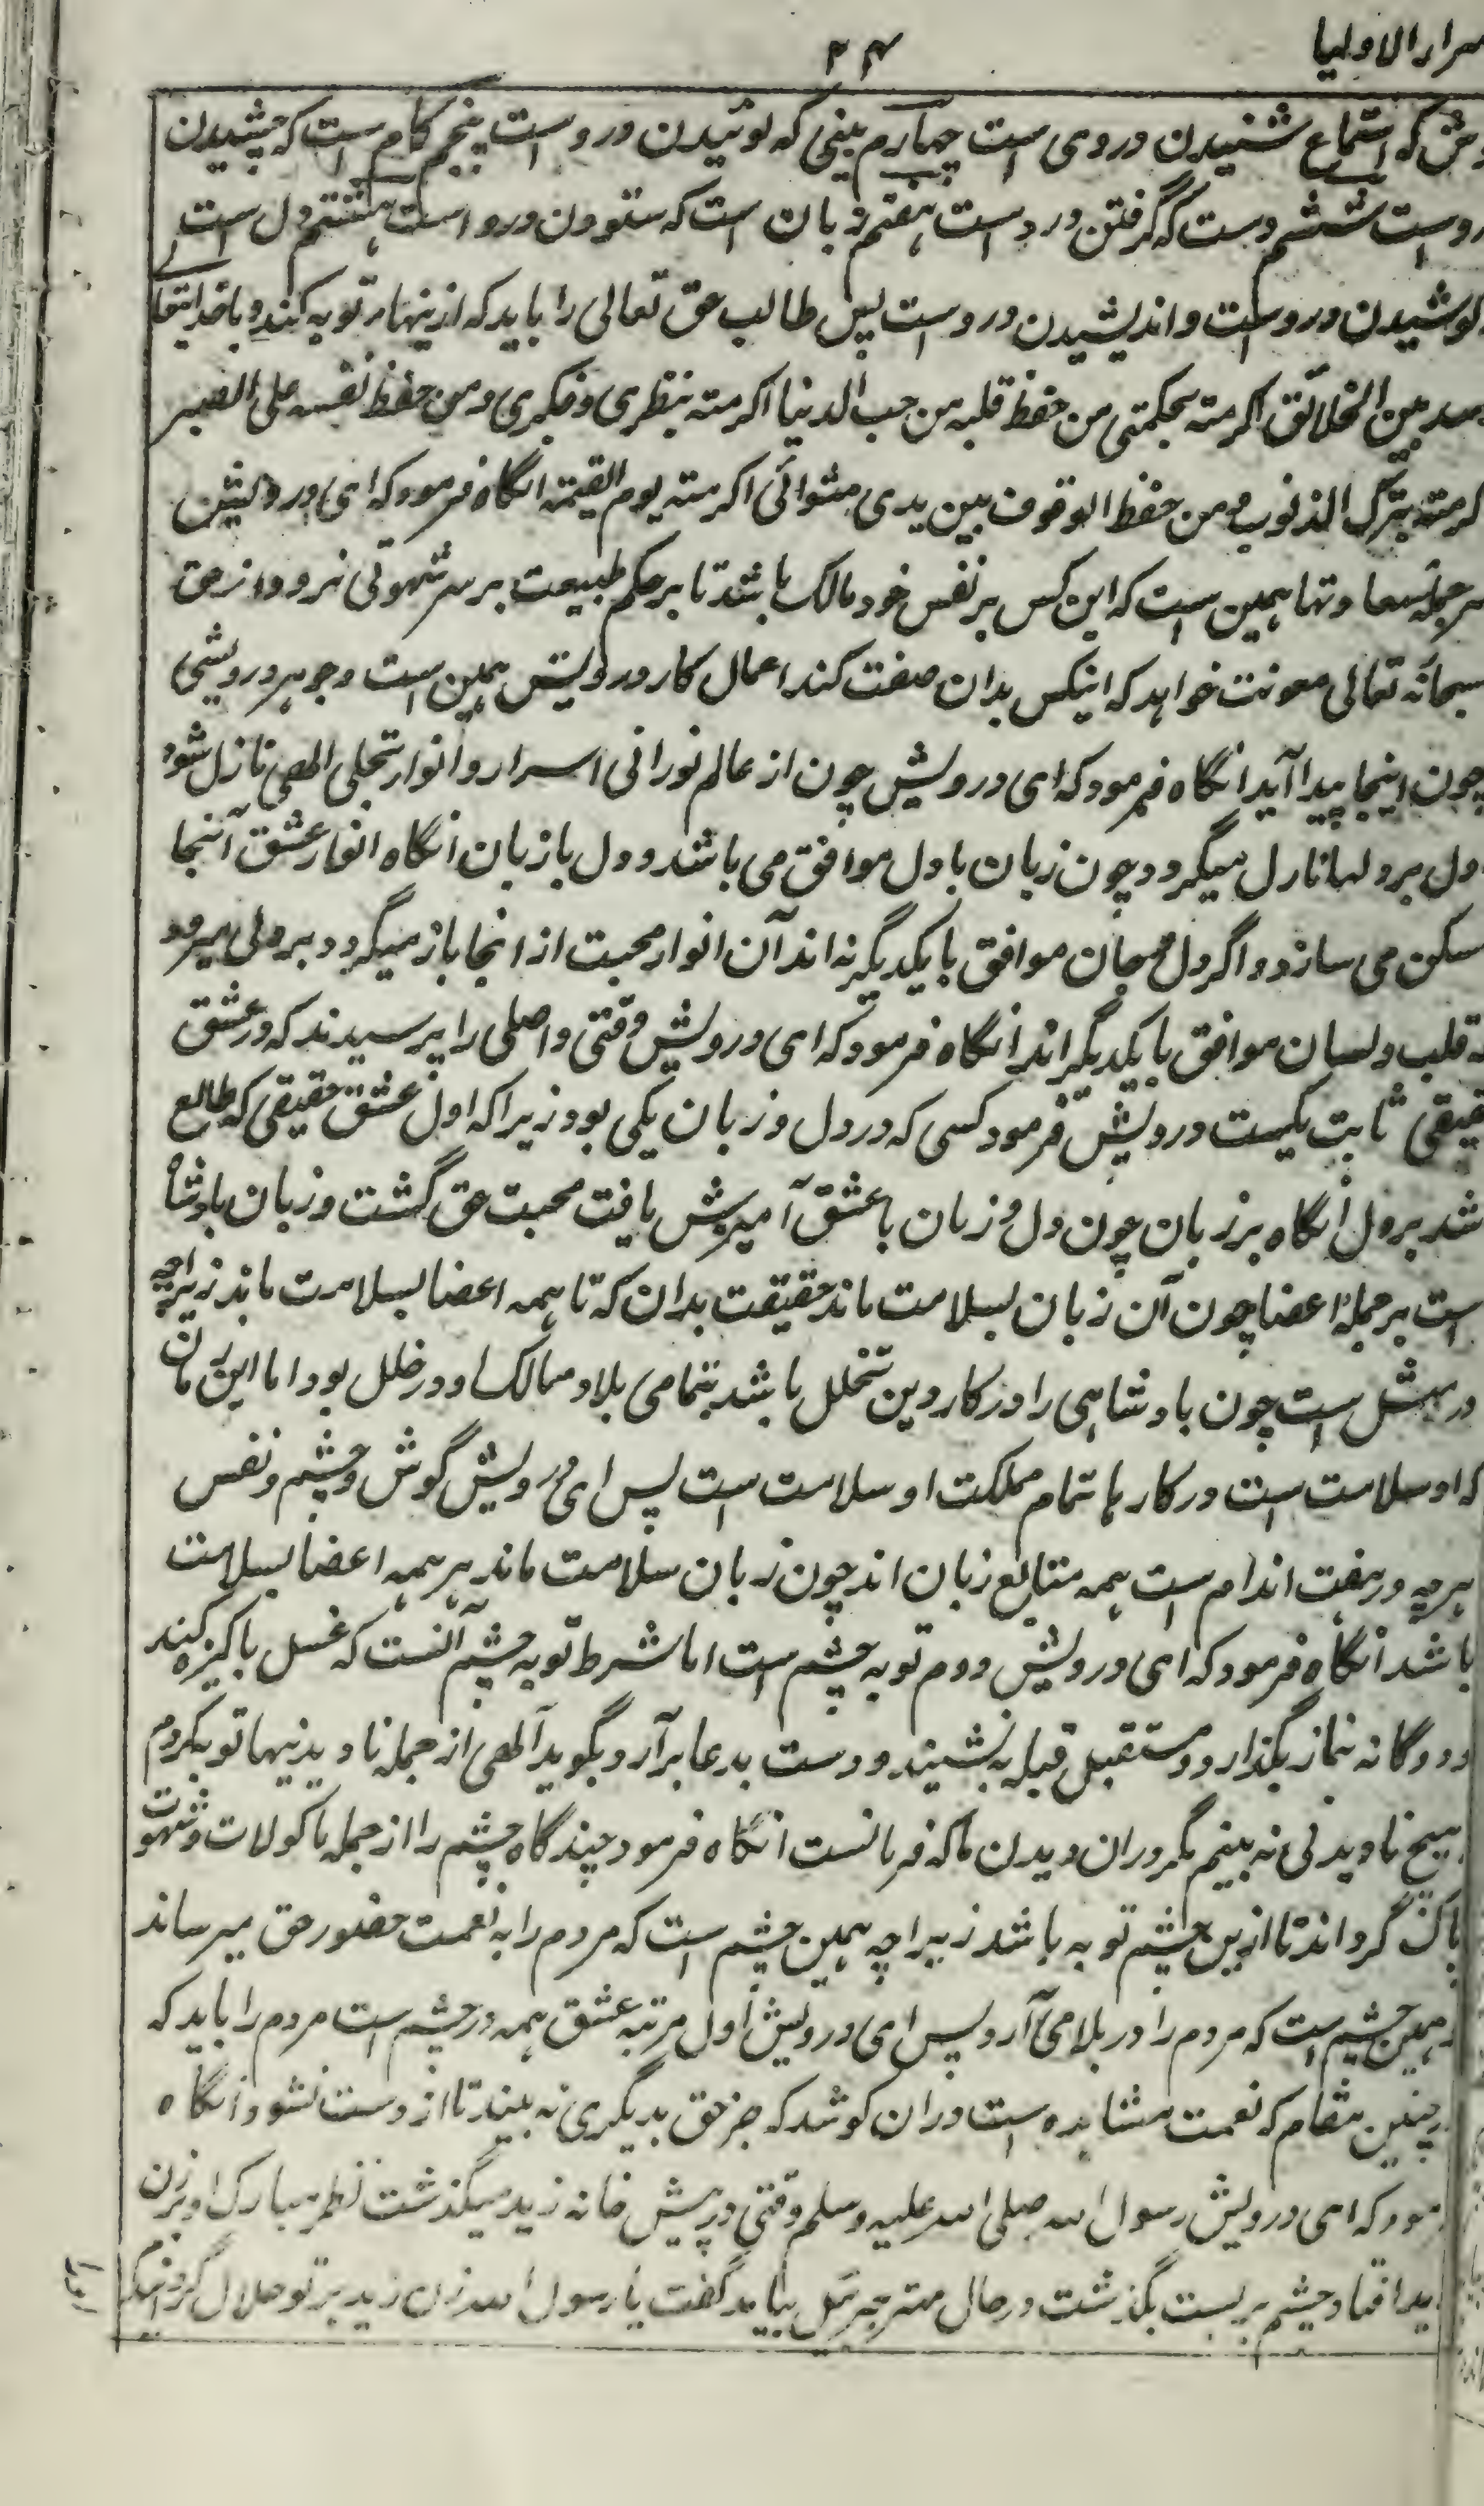 سرار الاولیا
۲۴
وش که استماع شنیدن دروی است چهارم بینی که بوئیدن دروست پنجم کام است که چشیدن
روست ششم دست که گرفتن دردست هفتم زبان است که ستودن درواست هشتم دل است
کوشیدن دروست و اندیشیدن دروست پس طالب حق تعالی را باید که ازینها توبه کند و با خدایتعا
بین الخلائق اکرمته بحکمتی من حفظ قلبه من حب الدنیا اکرمته بنظری و فکری ومن حفظ نفسه علی الصبر
کرمته بترک الذنوب ومن حفظ الوقوف بین یدی اکرمته یوم القیمة انگاه فرمود که ای درویش
سرجمله سعادتها همین است که این کس بر نفس خود مالک باشد تا بر حکم طبیعت بر سر شهوتی نرود از حق
سبحانه تعالی معونت خواهد که اینکس بدان صفت کند اعمال کار درویش همین است و جوهر درویشی
چون اینجا پیدا آید انگاه فرمود که ای درویش چون از عالم نورانی اسرار و انوار تجلی الهی نازل شود
اول بر دلها نازل میگردد چون زبان با دل موافق می باشد و دل با زبان انگاه انوار عشق آنجا
سکن می سازد و اگر دل و جان موافق با یکدیگر نه اند آن انوار محبت از انجا باز میگردد بر دلی میرود
که قلب و لسان موافق با یکدیگر اند انگاه فرمود که ای درویش وقتی واصلی را پرسیدند که در عشق
حقیقی ثابت کیست درویش فرمود کسی که در دل و زبان یکی بود زیرا که اول عشق حقیقی که طالع
شد بر دل انگاه بر زبان چون دل و زبان با عشق آمیزش یافت محبت حق گشت و زبان بادشاه
است بر جمله اعضا چون آن زبان بسلامت ماند حقیقت بدان که تا همه اعضا بسلامت ماند زیراچه
در مثل است چون بادشاهی را در کار دین تخلل باشد بتمامی بلاد ممالک او در خلل بود اما این زمان
که او سلامت است در کارها تمام مملکت او سلامت است پس ای درویش گوش و چشم و نفس
هرچه در هفت اندام است همه متابع زبان اند چون زبان سلامت ماند هر همه اعضا بسلامت
باشد انگاه فرمود که ای درویش دوم توبه چشم است اما شرط توبه چشم آنست که غسل پاکیزه کند
و دوگانه نماز بگذارد و مستقبل قبله بنشیند و دست بدعا برآرد بگوید الهی از جمله نادیدنیها توبه کردم
هیچ نادیدنی نه بینم مگر دران دیدن ما که فرمانست انگاه فرمود چند گاه چشم را از جمله ماکولات و شهوت
پاک گرداند تا ازین چشم توبه باشد زیراچه همین چشم است که مردم را به نعمت حضور حق میرساند
همین چشم است که مردم را در بلا می آرد پس ای درویش اول مرتبه عشق همه در چشم است مردم را باید که
چنین مقام که نعمت مشاهده است دران کوشد که جز حق بدیگری نه بیند تا از دست نشود انگاه
مود که ای درویش رسول الله صلی الله علیه وسلم وقتی در پیش خانه زید میگذشت نظر مبارک او بر زن
ید افتاد چشم بربست بگذشت در حال مهتر جبرئیل بیامد گفت یا رسول الله زن زید بر تو حلال